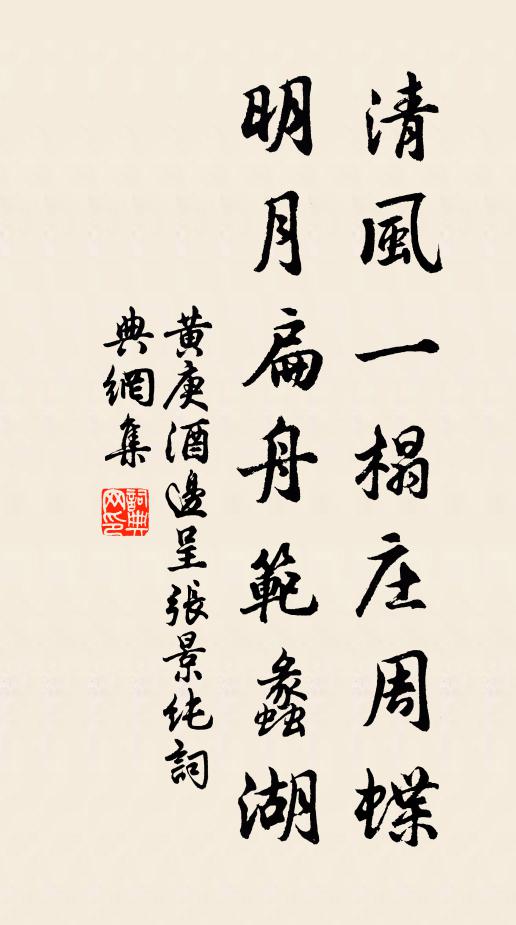 清風一榻庄周蝶
明月扁舟範蠡湖
黄庚酒邊呈張景純詞
典網集
詞典網印